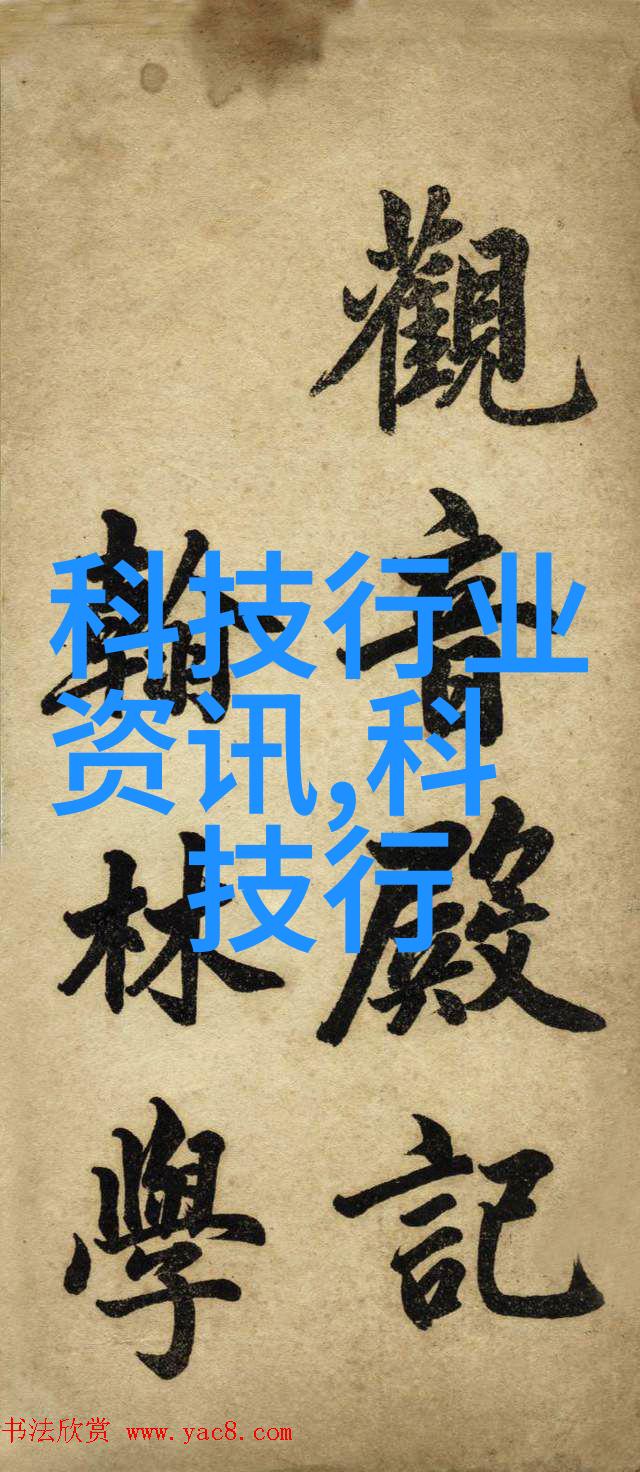 觀音殿記
翰林學
科技行业
资讯,科
技行
书法欣赏 www.yac8.com